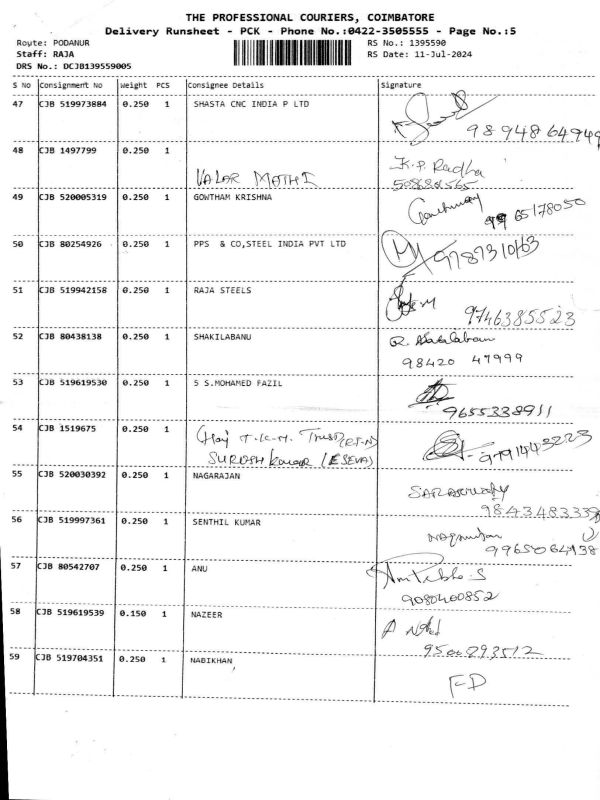 THE PROFESSIONAL COURIERS, COIMBATORE
Delivery Runsheet - PCK - Phone No.:0422-3505555 - Page No.:5
Route: PODANUR RS No.: 1395590
Staff: RAJA RS Date: 11-Jul-2024
DRS No.: DCJB139559005
S No Consignment No Weight PCS Consignee Details Signature
47 CJB 519973884 0.250 1 SHASTA CNC INDIA P LTD
98948 64949
48 CJB 1497799 0.250 1
VALAR MOTHI K.P. Radha
49 CJB 520005319 0.250 1 GOWTHAM KRISHNA
65178050
50 CJB 80254926 0.250 1 PPS & CO,STEEL INDIA PVT LTD
51 CJB 519942158 0.250 1 RAJA STEELS
9746385523
52 CJB 80438138 0.250 1 SHAKILABANU
98420 47999
53 CJB 519619530 0.250 1 5 S.MOHAMED FAZIL
9655338911
54 CJB 1519675 0.250 1 Haj T.K.M. Trust
SURESH kumar (ESEVA) 9791443223
55 CJB 520030392 0.250 1 NAGARAJAN
9843483339
56 CJB 519997361 0.250 1 SENTHIL KUMAR
9965064138
57 CJB 80542707 0.250 1 ANU
9080400852
58 CJB 519619539 0.150 1 NAZEER
9500293512
59 CJB 519704351 0.250 1 NABIKHAN
FD